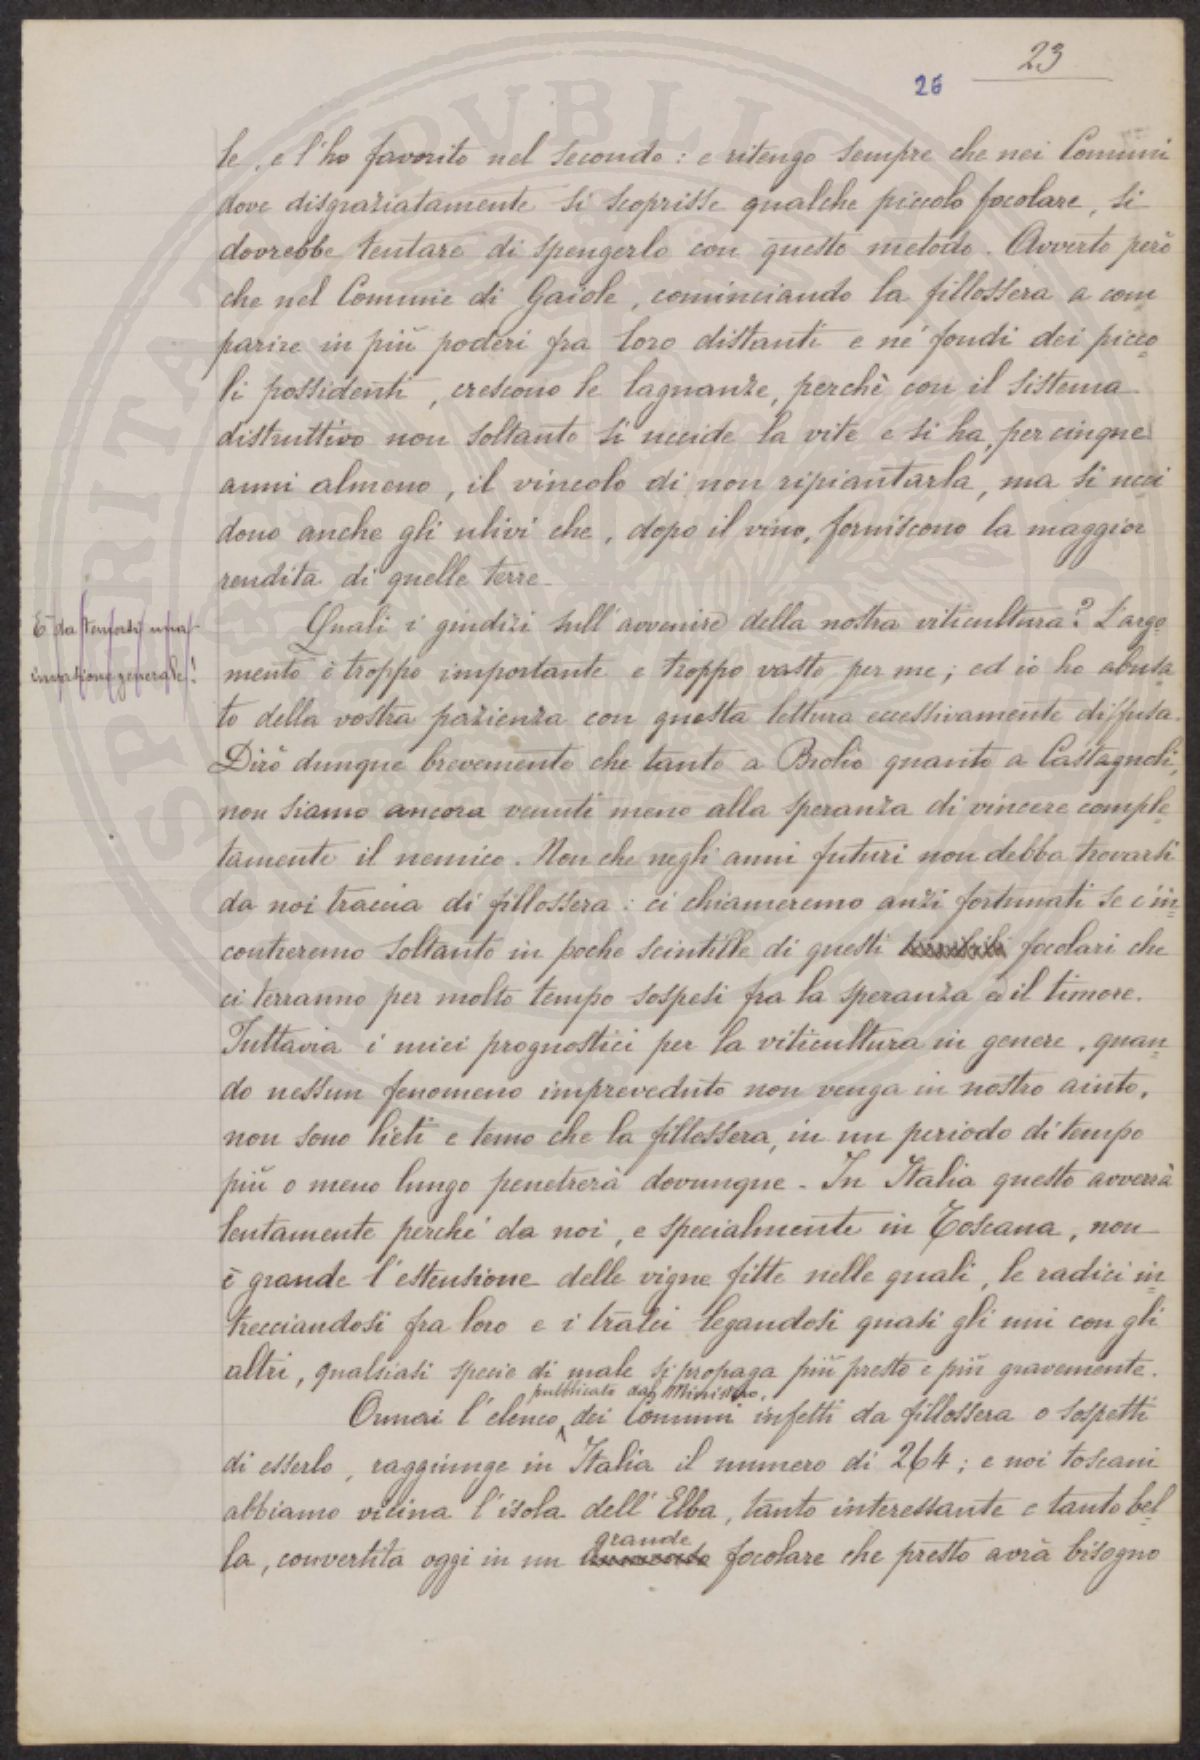 23
26
le, e l'ho favorito nel secondo: e ritengo sempre che nei Comuni
dove disgraziatamente si scoprisse qualche piccolo focolare, si
dovrebbe tentare di spengerlo con questo metodo. Avverto però
che nel Comune di Gaiole, cominciando la fillossera a com
parire in più poderi fra loro distanti e ne' fondi dei picco
li possidenti, crescono le lagnanze, perchè con il sistema
distruttivo non soltanto si uccide la vite e si ha, per cinque
anni almeno, il vincolo di non ripiantarla, ma si ucci
dono anche gli ulivi che, dopo il vino, forniscono la maggior
rendita di quelle terre.
È da temersi una
invasione generale!
Quali i giudizi sull'avvenire della nostra viticultura? L'argo
mento è troppo importante e troppo vasto per me; ed io ho abusa
to della vostra pazienza con questa lettura eccessivamente diffusa.
Dirò dunque brevemente che tanto a Brolio quanto a Castagnoli,
non siamo ancora venuti meno alla speranza di vincere comple
tamente il nemico. Non che negli anni futuri non debba trovarsi
da noi traccia di fillossera: ci chiameremo anzi fortunati se c'in
contreremo soltanto in poche scintille di questi focolari che
ci terranno per molto tempo sospesi fra la speranza ed il timore.
Tuttavia i miei prognostici per la viticultura in genere, quan
do nessun fenomeno impreveduto non venga in nostro aiuto,
non sono lieti e temo che la fillossera, in un periodo di tempo
più o meno lungo penetrerà dovunque. In Italia questo avverrà
lentamente perchè da noi, e specialmente in Toscana, non
è grande l'estensione delle vigne fitte nelle quali, le radici in
trecciandosi fra loro e i tralci legandosi quasi gli uni con gli
altri, qualsiasi specie di male si propaga più presto e più gravemente.
pubblicato dal Ministero,
Ormai l'elenco dei Comuni infetti da fillossera o sospetti
di esserlo, raggiunge in Italia il numero di 264; e noi toscani
abbiamo vicina l'isola dell'Elba, tanto interessante e tanto bel
grande
la, convertita oggi in un focolare che presto avrà bisogno